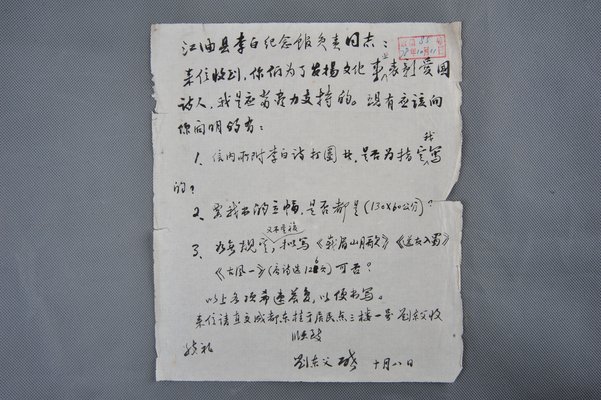 江油县李白纪念馆负责同志：
来信收到，你们为了发扬文化事业，表彰爱国
诗人，我是应当尽力支持的。现有应该向
你问明的有：
1、信内所附李白诗打圈廿，是否为指定我写
的？
2、要我书的立幅，是否都是（130×60公分）？
3、如无规定，又不重複，拟写《峨眉山月歌》《送友入蜀》
《古风一》（唐诗选126次）可否？
以上各项希速荅复，以便书写。
来信请直交成都东桂子居民点三楼一号刘东父收
顺致
敬礼
刘东父 十月八日